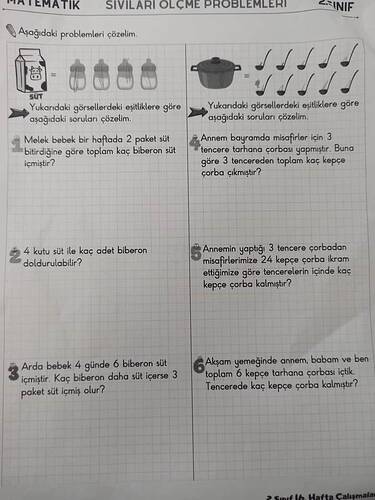 MATEMATİK SIVILARI ÖLÇME PROBLEMLERİ 2. SINIF
Aşağıdaki problemleri çözelim.
SÜT
=
Yukarıdaki görsellerdeki eşitliklere göre
aşağıdaki soruları çözelim.
1 Melek bebek bir haftada 2 paket süt
bitirdiğine göre toplam kaç biberon süt
içmiştir?
2 4 kutu süt ile kaç adet biberon
doldurulabilir?
3 Arda bebek 4 günde 6 biberon süt
içmiştir. Kaç biberon daha süt içerse 3
paket süt içmiş olur?
=
Yukarıdaki görsellerdeki eşitliklere göre
aşağıdaki soruları çözelim.
4 Annem bayramda misafirler için 3
tencere tarhana çorbası yapmıştır. Buna
göre 3 tencereden toplam kaç kepçe
çorba çıkmıştır?
5 Annemin yaptığı 3 tencere çorbadan
misafirlerimize 24 kepçe çorba ikram
ettiğimize göre tencerelerin içinde kaç
kepçe çorba kalmıştır?
6 Akşam yemeğinde annem, babam ve ben
toplam 6 kepçe tarhana çorbası içtik.
Tencerede kaç kepçe çorba kalmıştır?
2. Sınıf 16. Hafta Çalışmaları